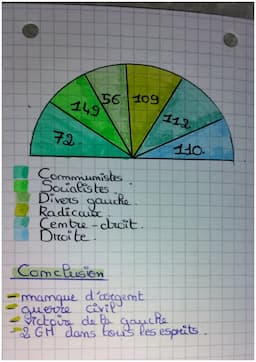 72
149
56
109
112
110
Communistes
Socialistes.
Divers gauche.
Radicaux.
Centre-droit.
Droite.
Conclusion
- manque d'argent
- guerre civil
- victoire de la gauche
- 2 GM dans tous les esprits.